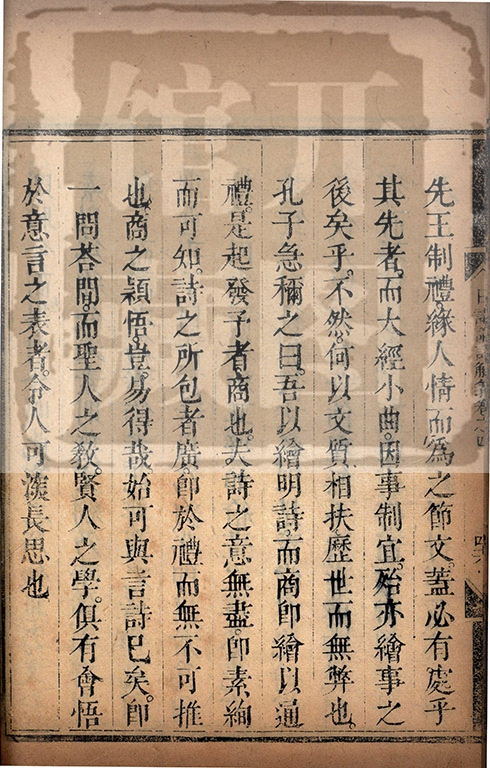 先王制禮。緣人情而為之節文。蓋必有處乎
其先者。而大經小曲。因事制宜。殆亦繪事之
後矣乎。不然。何以文質相扶歷世而無弊也。
孔子急稱之曰。吾以繪明詩。而商即繪以通
禮。是起發予者商也。夫詩之意無盡。即素絢
而可知。詩之所包者廣。即於禮而無不可推
也。商之穎悟。豈易得哉。始可與言詩已矣。即
一問荅間。而聖人之教。賢人之學。俱有會悟
於意言之表者。令人可深長思也